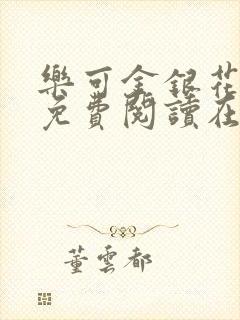 樂可金銀花
免費閱讀在
董雲都